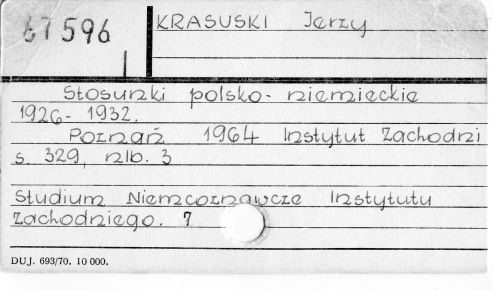 67596
KRASUSKI Jerzy
Stosunki polsko-niemieckie
1926-1932.
Poznań 1964 Instytut Zachodni
s. 329, nlb. 3
Studium Niemcoznawcze Instytutu
Zachodniego. 7
DUJ. 693/70. 10 000.